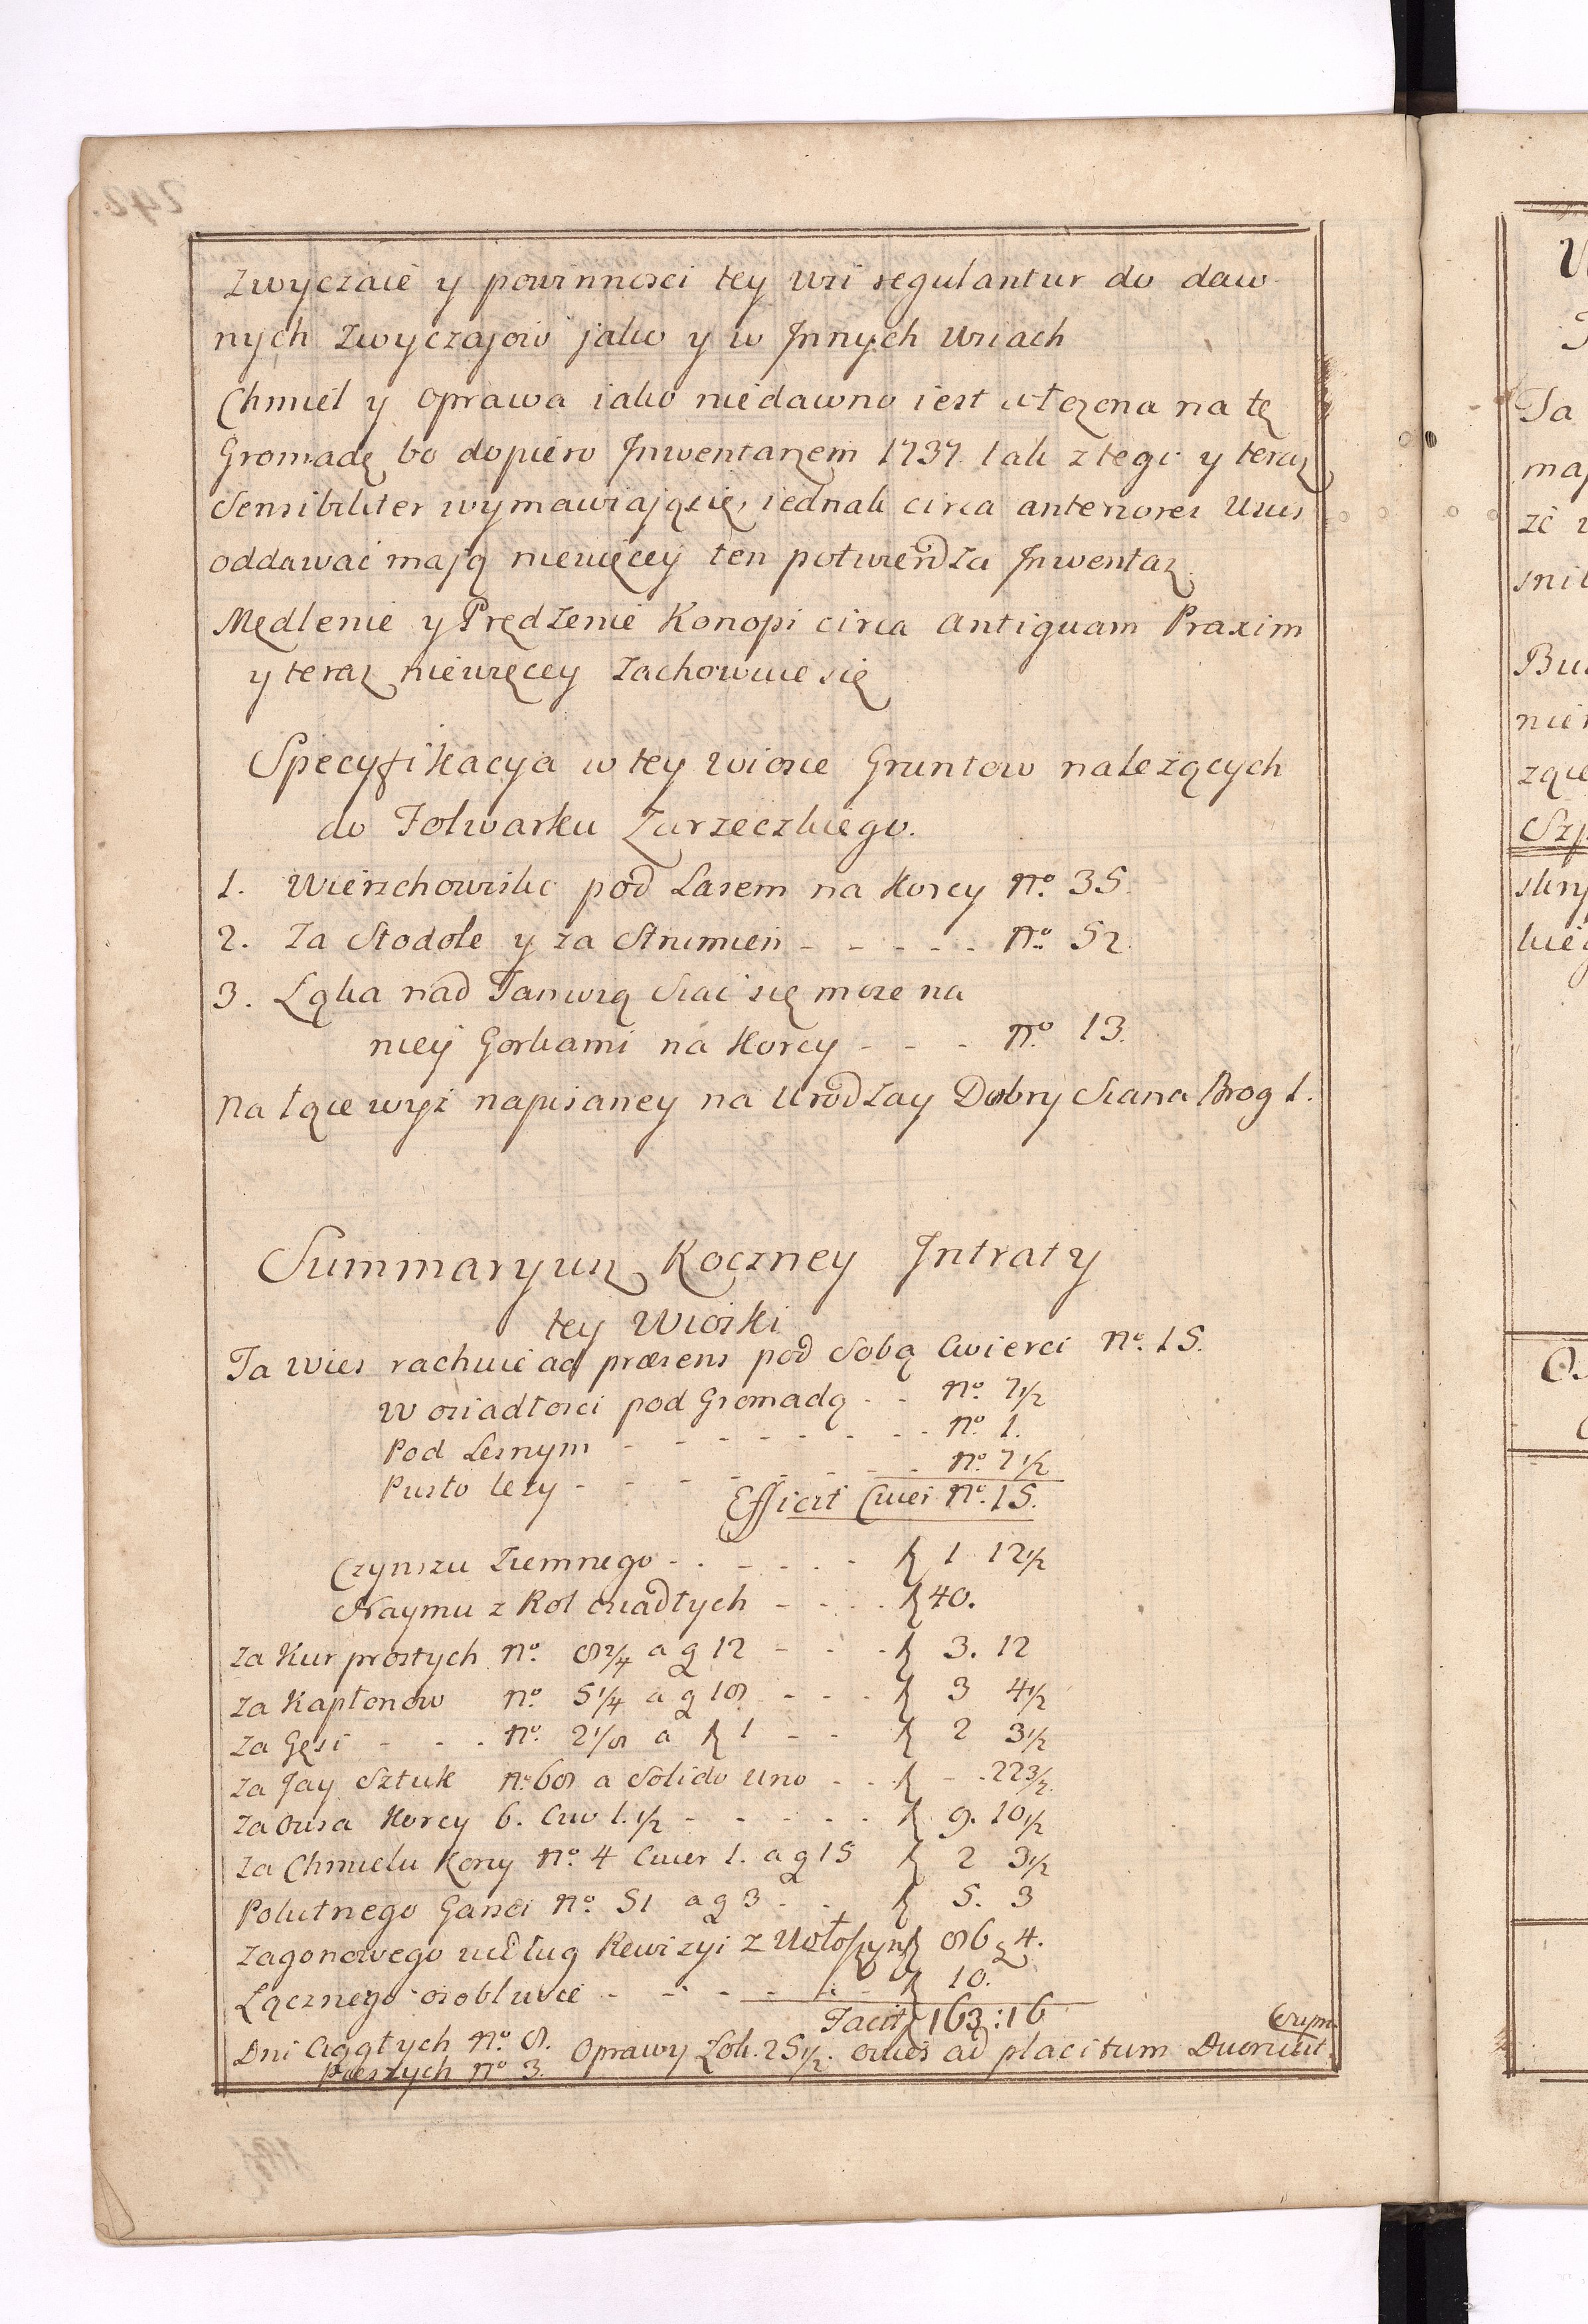 Zwyczaie y powinnosci tey wsi regulantur do daw
nych Zwyczajow jako y w Innych wsiach
Chmiel y oprawa iako niedawno iest włozona na tę
Gromadę bo dopiero Inwentarzem 1737. tak z tego y teraz
Sensibiliter wymawiając się, iednak circa anteriores Usus
oddawać mają niewięcey ten potwierdza Inwentarz
Mędlenie y Prędzenie Konopi circa Antiquam Praxim
y teraz niewięcey zachowuie się
Specyfikacya w tey wiosce Gruntow nalezących
do Folwarku Zarzeczkiego.
1. Wierzchowisko pod Lasem na Korcy No. 35.
2. Za Stodołe y za Strumien - - - - - No. 52.
3. Łąka nad Tanwią Siać się może na
niey Gorkami na Korcy - - - No. 13.
Na łące wyż napisaney na Urodzay Dobry Siana Brog 1.
Summaryusz Roczney Intraty
tey Wioski
Ta wies rachuie ad præsens pod Sobą Cwierci No. 15.
W osiadłosci pod Gromadą - - No. 7 1/2
Pod Lesnym - - - - - - - - No. 1.
Pusto lezy - - - - - - - No. 7 1/2
Efficit Cwier No. 15.
Czynszu Ziemnego - - - - - - ƶ 1 12 1/2
Naymu z Rol osiadłych - - - - ƶ 40.
Za Kur prostych No. 8 2/4 a g 12 - - - ƶ 3. 12
Za Kapłonow No. 5 1/4 a g 18 - - - ƶ 3 4 1/2
Za Gęsi - - - No. 2 1/8 a ƶ 1 - - ƶ 2 3 1/2
Za Jay Sztuk No. 68 a Solido uno - - ƶ - - 22 3/2.
Za Owsa Korcy 6. Cwi 1. 1/2 - - - - - ƶ 9. 10 1/2
Za Chmielu Korcy No. 4 Cwier 1. a g 15 ƶ 2 3 1/2
Polutnego Garsci No. 51 a g 3 - - ƶ 5. 3
Zagonowego według Rewizyi z ƶ 86 g 4.
Łącznego osobliwie - - - - - - ƶ 10.
Facit ƶ 163 : 16
Dni Ciągłych No. 8. Oprawy Łok. 25 1/2. ad placitum
Pieszych No 3.